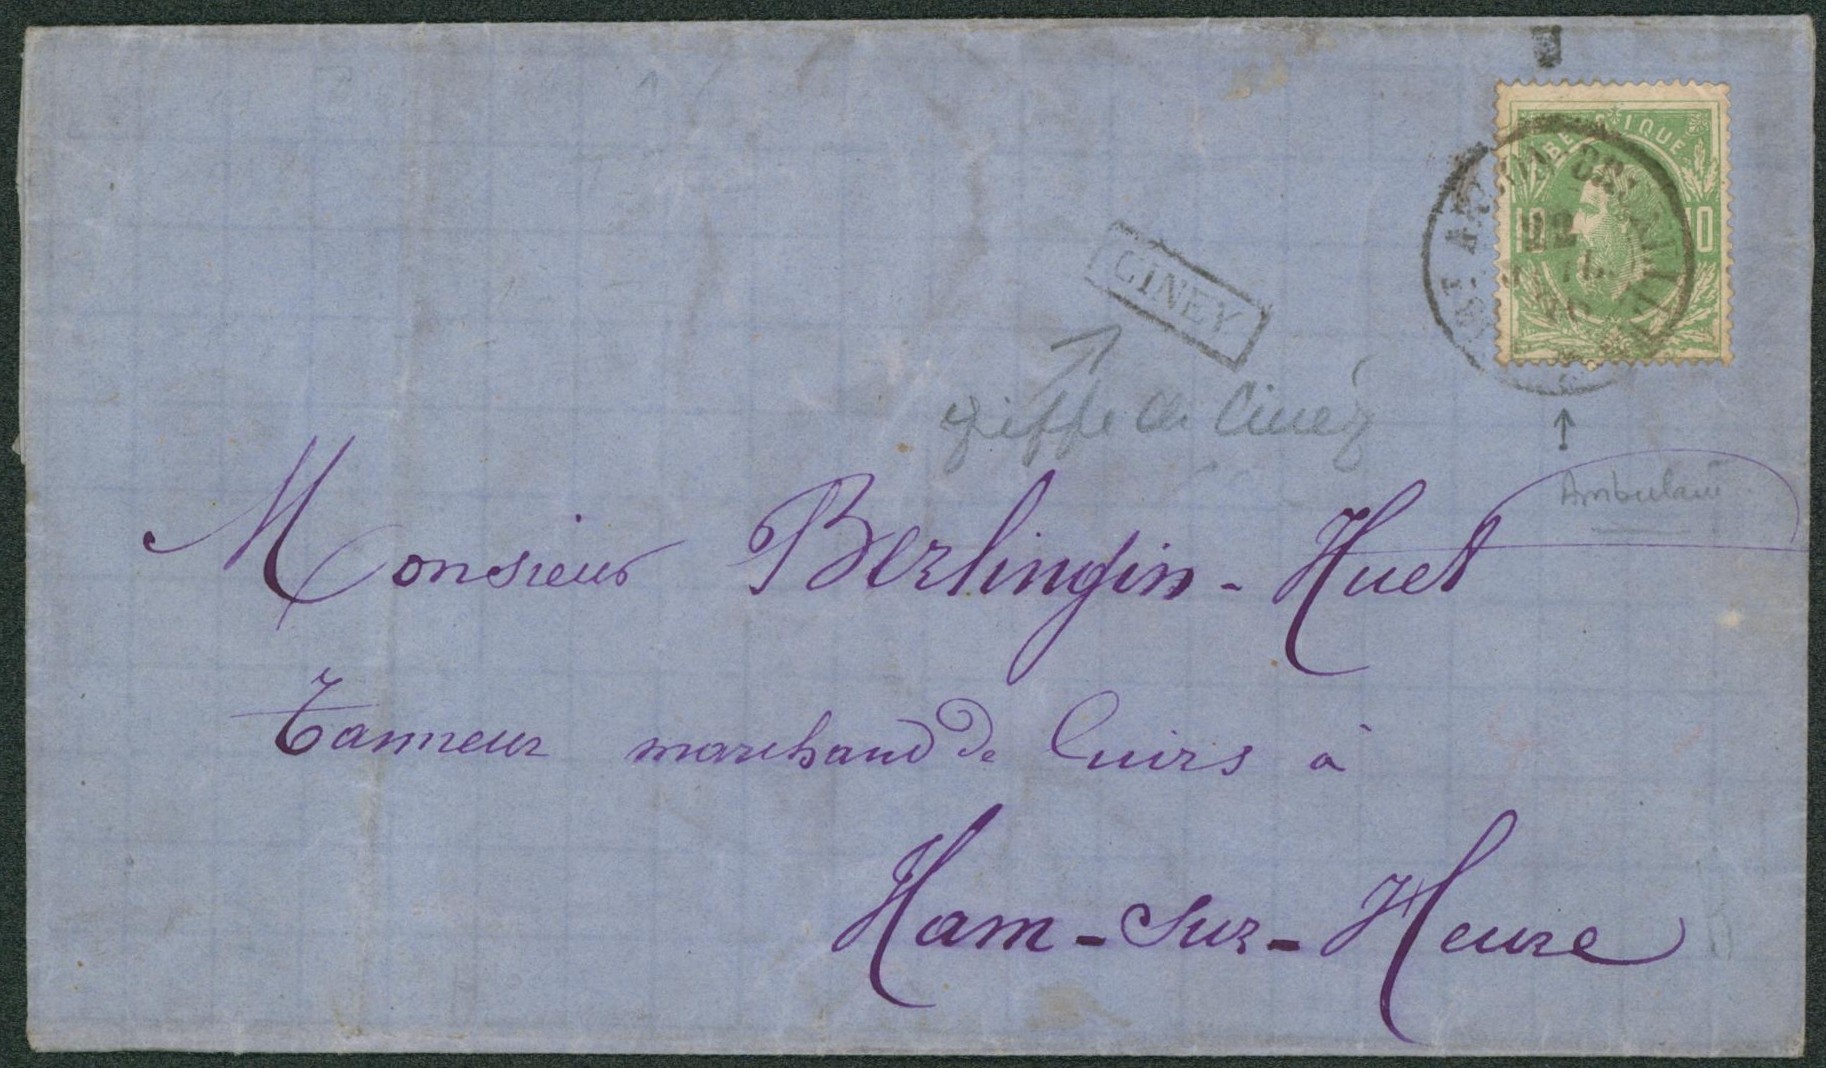 BELGIQUE
10 10
22
CINEY
griffe de Ciney
Ambulant
Monsieur Berlingin - Huet
Tanneur marchand de Cuirs à
Ham - sur - Heure